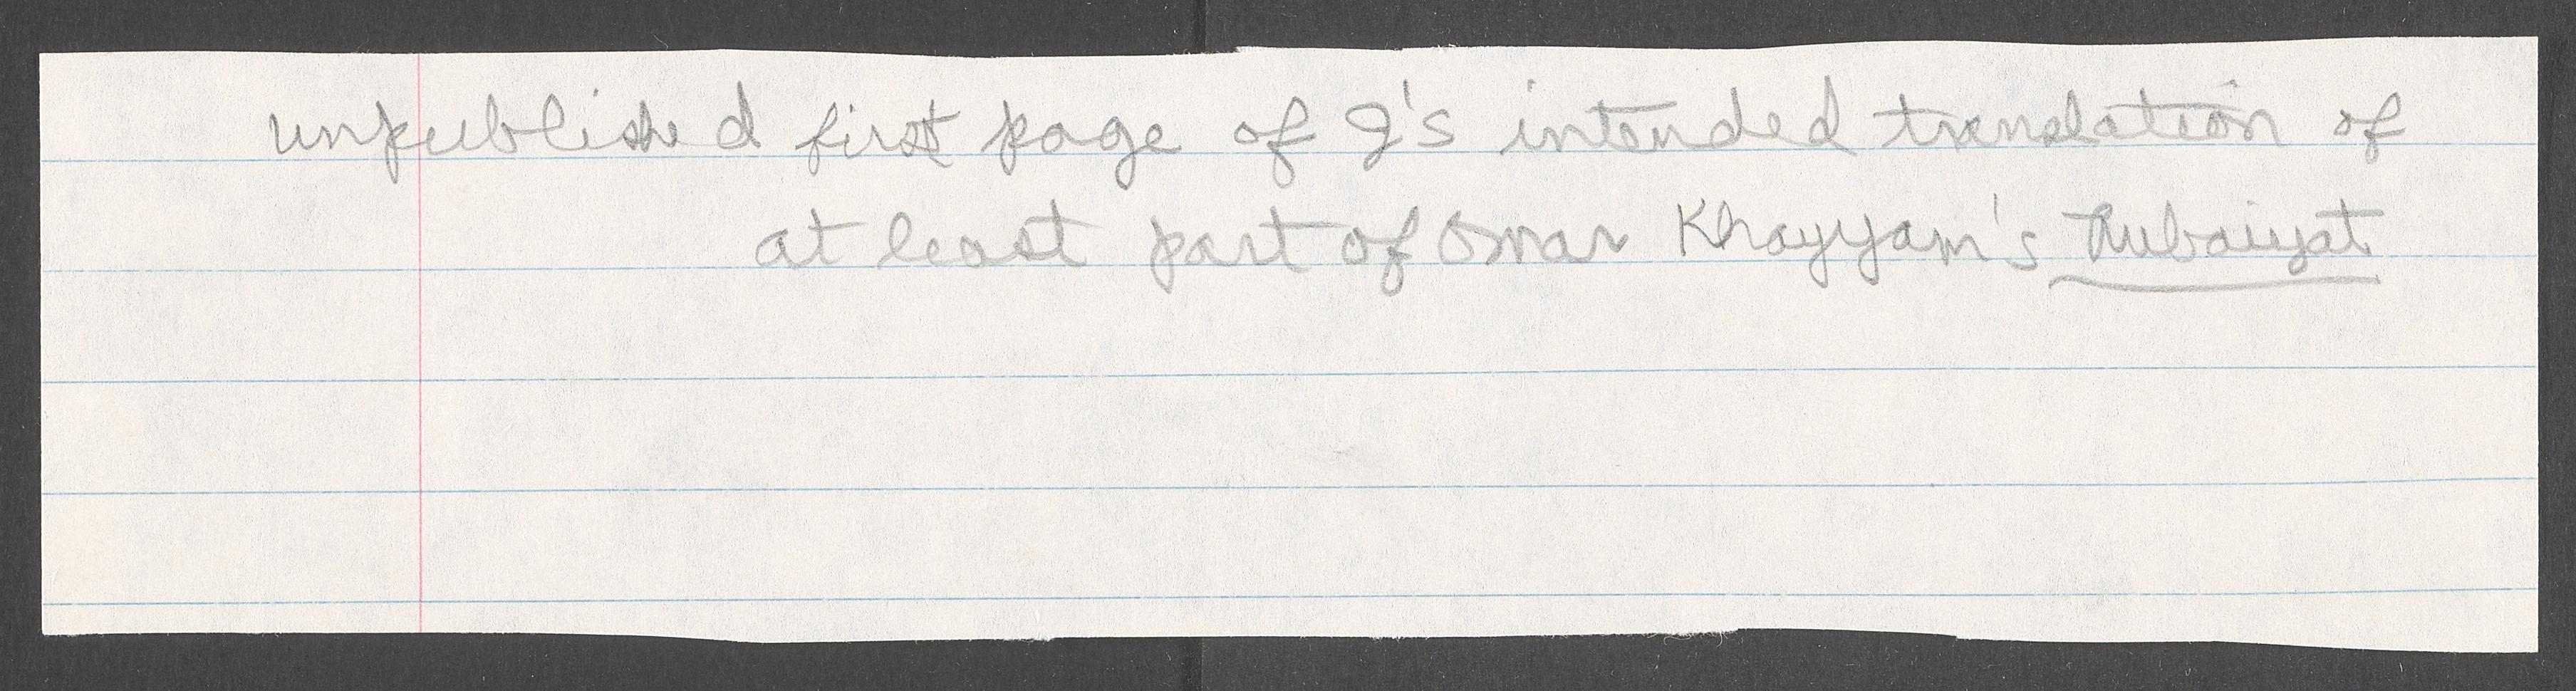 unpublished first page of J's intended translation of
at least part of Omar Khayyam's Rubaiyat